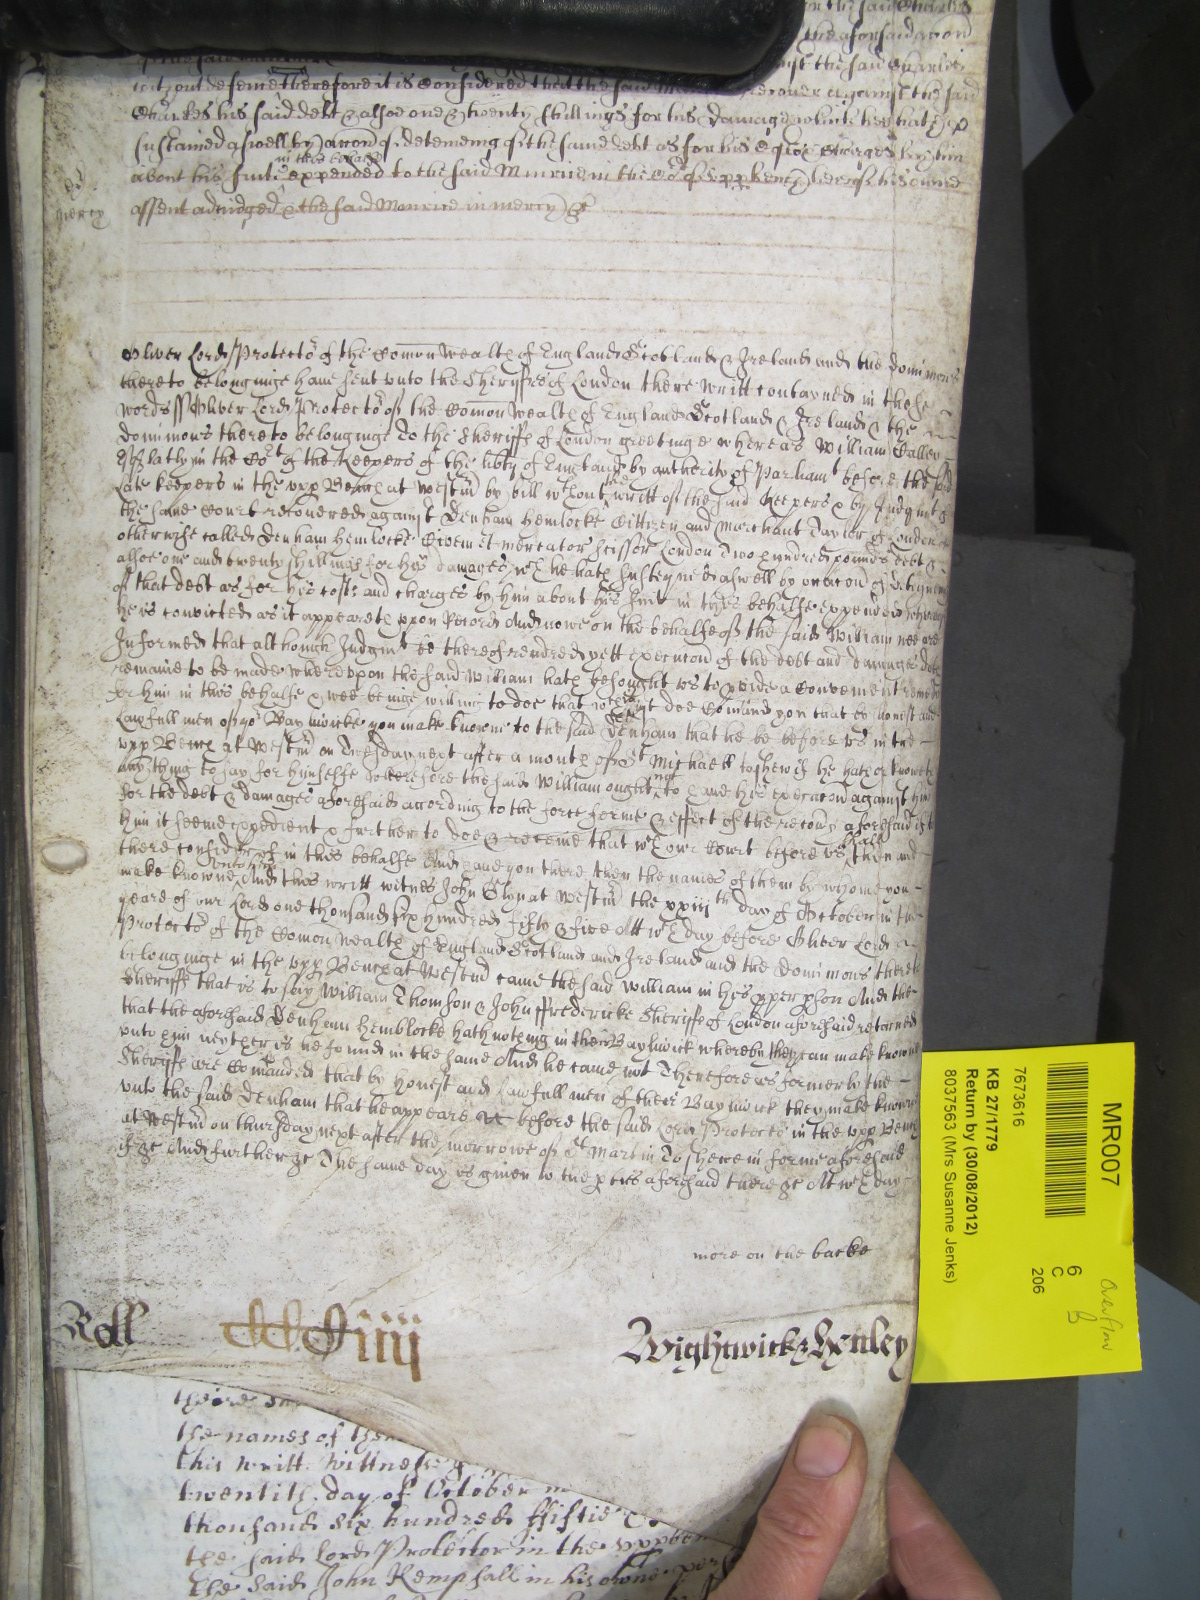 for the said Charles
the aforsaid accon
against the said Charles
without defence Therefore it is Considered that the said recover against the said
Charles his said debt & alsoe one & twenty shillings for his Damages which hee hath
sustained aswell by occon of deteineing of the same debt as for his Costs Charges by him
about his suite in this behalfe expended to the said Mourice in the Cort of upp Bench here of his owne
assent adiudged & the said Mourice in mercy &c
mercy
Oliver Lord Protector of the Comonwealth of England Scotland & Ireland and the dominions
thereto belonginge have sent unto the Sheryffes of London there writt contayned in these
words ss Oliver Lord Protector of the Comon Wealth of England Scotland & Ireland & the
dominions thereto belonginge To the Sheriffs of London greetinge whereas William Calley
latly in the Cort of the Keepers of the libty of England by authority of Parliamt before the said
late keepers in the upp Bench at Westmr by bill wthout writt of the said Keepers & by Judgmt of
the same Court recovered against Denham Hemlocke Cittizen and Marchant Taylor of London
otherwise called Denham Hemlocke Civem et mercator scissor London Two hundred pounds debt &
alsoe one and twenty shillings for hys damages wch he hath susteyned aswell by occacon of deteyning
of that debt as for hys costs and charges by hym about hys suit in thys behalfe expended whereof
he is convicted as it appeareth uppon Record And nowe on the behalfe of the said William wee are
Informed that although Judgmt be thereof rendred yett execucon of the debt and damages doth
remaine to be made whereupon the said William hath besought us to pvide a Convenient remedy
for him in this behalfe & wee beinge willing to doe that wch is iust doe Comand you that by honest and
Lawfull men of yor Baylwicke you make knowne to the said Denham that he be before us in the
upp Bench at Westmr on Tuesday next after a month of St Michaell to shew if he hath or knoweth
any thing to say for hymselfe wherefore the said William ought not to have hys execucon against him
for the debt & damages aforesaid according to the force forme & effect of the recovy aforesaid if to
him it seeme expedient & further to doe & receive that wch our Court before us shall then and
there consider of in this behalfe And have you there then the names of them by whome you
make knowne unto him And this writt witnes John Glyn at Westmr the xxiijth day of October in the
yeare of our Lord one thousand six hundred fifty & five Att wch day before Oliver Lord
Protector of the Comon wealth of England Scotland and Ireland and the Dominions thereto
belonginge in the upp Bench at Westmr came the said William in hys pper pson And the
Sheriffs that is to say William Thomson & John ffredericke Sheriffe of London aforesaid returned
that the aforesaid Denham Hemblocke hath nothing in their Baylwick whereby they can make knowne
unto him neyther is he found in the same And he came not Therefore as formerly the
Sheriffe are Comanded that by honest and lawfull men of their Baylwick they make knowne
unto the said Denham that he appeare before the said Lord Protector in the upp Bench
at Westmr on thursday next after the morrowe of St Martin To shewe in forme aforesaid
if &c And further &c The same day is given to the pties aforesaid there &c Att wch day
more on the backe
Roll CCCCiiij Wightwick & Henley
theire
the names of them
this writt. Wittnesse
twentith day of October in
thousand six hundred ffiftie
the said Lord Protector in the uppben
the said John Kempsall in his owne per
MR007
7673616
KB 27/1779
Return by (30/08/2012)
8037563 (Mrs Susanne Jenks)
6
C
206
Overflow